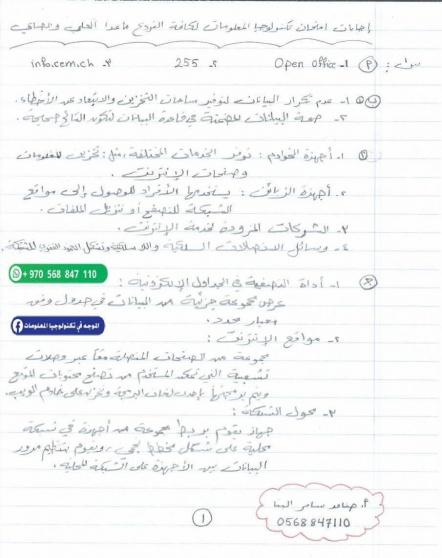 إجابات امتحان تكنولوجيا المعلومات لكافة الفروع ماعدا العلمي والصناعي
سؤال 1: (P) 1- Open office 2- 255 3- info.cem.ch
(ب) 1- عدم تكرار البيانات لتوفير مساحات التخزين والابتعاد عن الأخطاء.
2- صحة البيانات المضمنة في قاعدة البيانات لتكون النتائج صحيحة.
1. أجهزة الخوادم: توفر الخدمات المختلفة، مثل: تخزين المعلومات
وصفحات الإنترنت.
2. أجهزة الزبائن: يستخدمها الأفراد للوصول إلى مواقع
الشبكة للتصفح أو تنزيل الملفات.
3. الشركات المزودة لخدمة الإنترنت.
4- وسائل الاتصالات السلكية واللاسلكية وتشكل للشبكة.
+ 970 568 847 110
1- أداة التصفية في الجداول الإلكترونية:
عرض مجموعة جزئية من البيانات في جدول وفق
معيار محدد.
الموجه في تكنولوجيا المعلومات
2- مواقع الإنترنت:
مجموعة من الصفحات المتصلة معًا عبر وصلات
تشعبية التي تمكن المستخدم من تصفح محتويات الموقع
ويتم برمجتها بإحدى لغات البرمجة وتخزن على خادم الويب.
3- محول الشبكة:
جهاز يقوم بربط مجموعة من أجهزة في شبكة
محلية على شكل مخطط نجمي، ويقوم بتنظيم مرور
البيانات بين الأجهزة على الشبكة المحلية.
أ. سامر البنا
0568847110
1